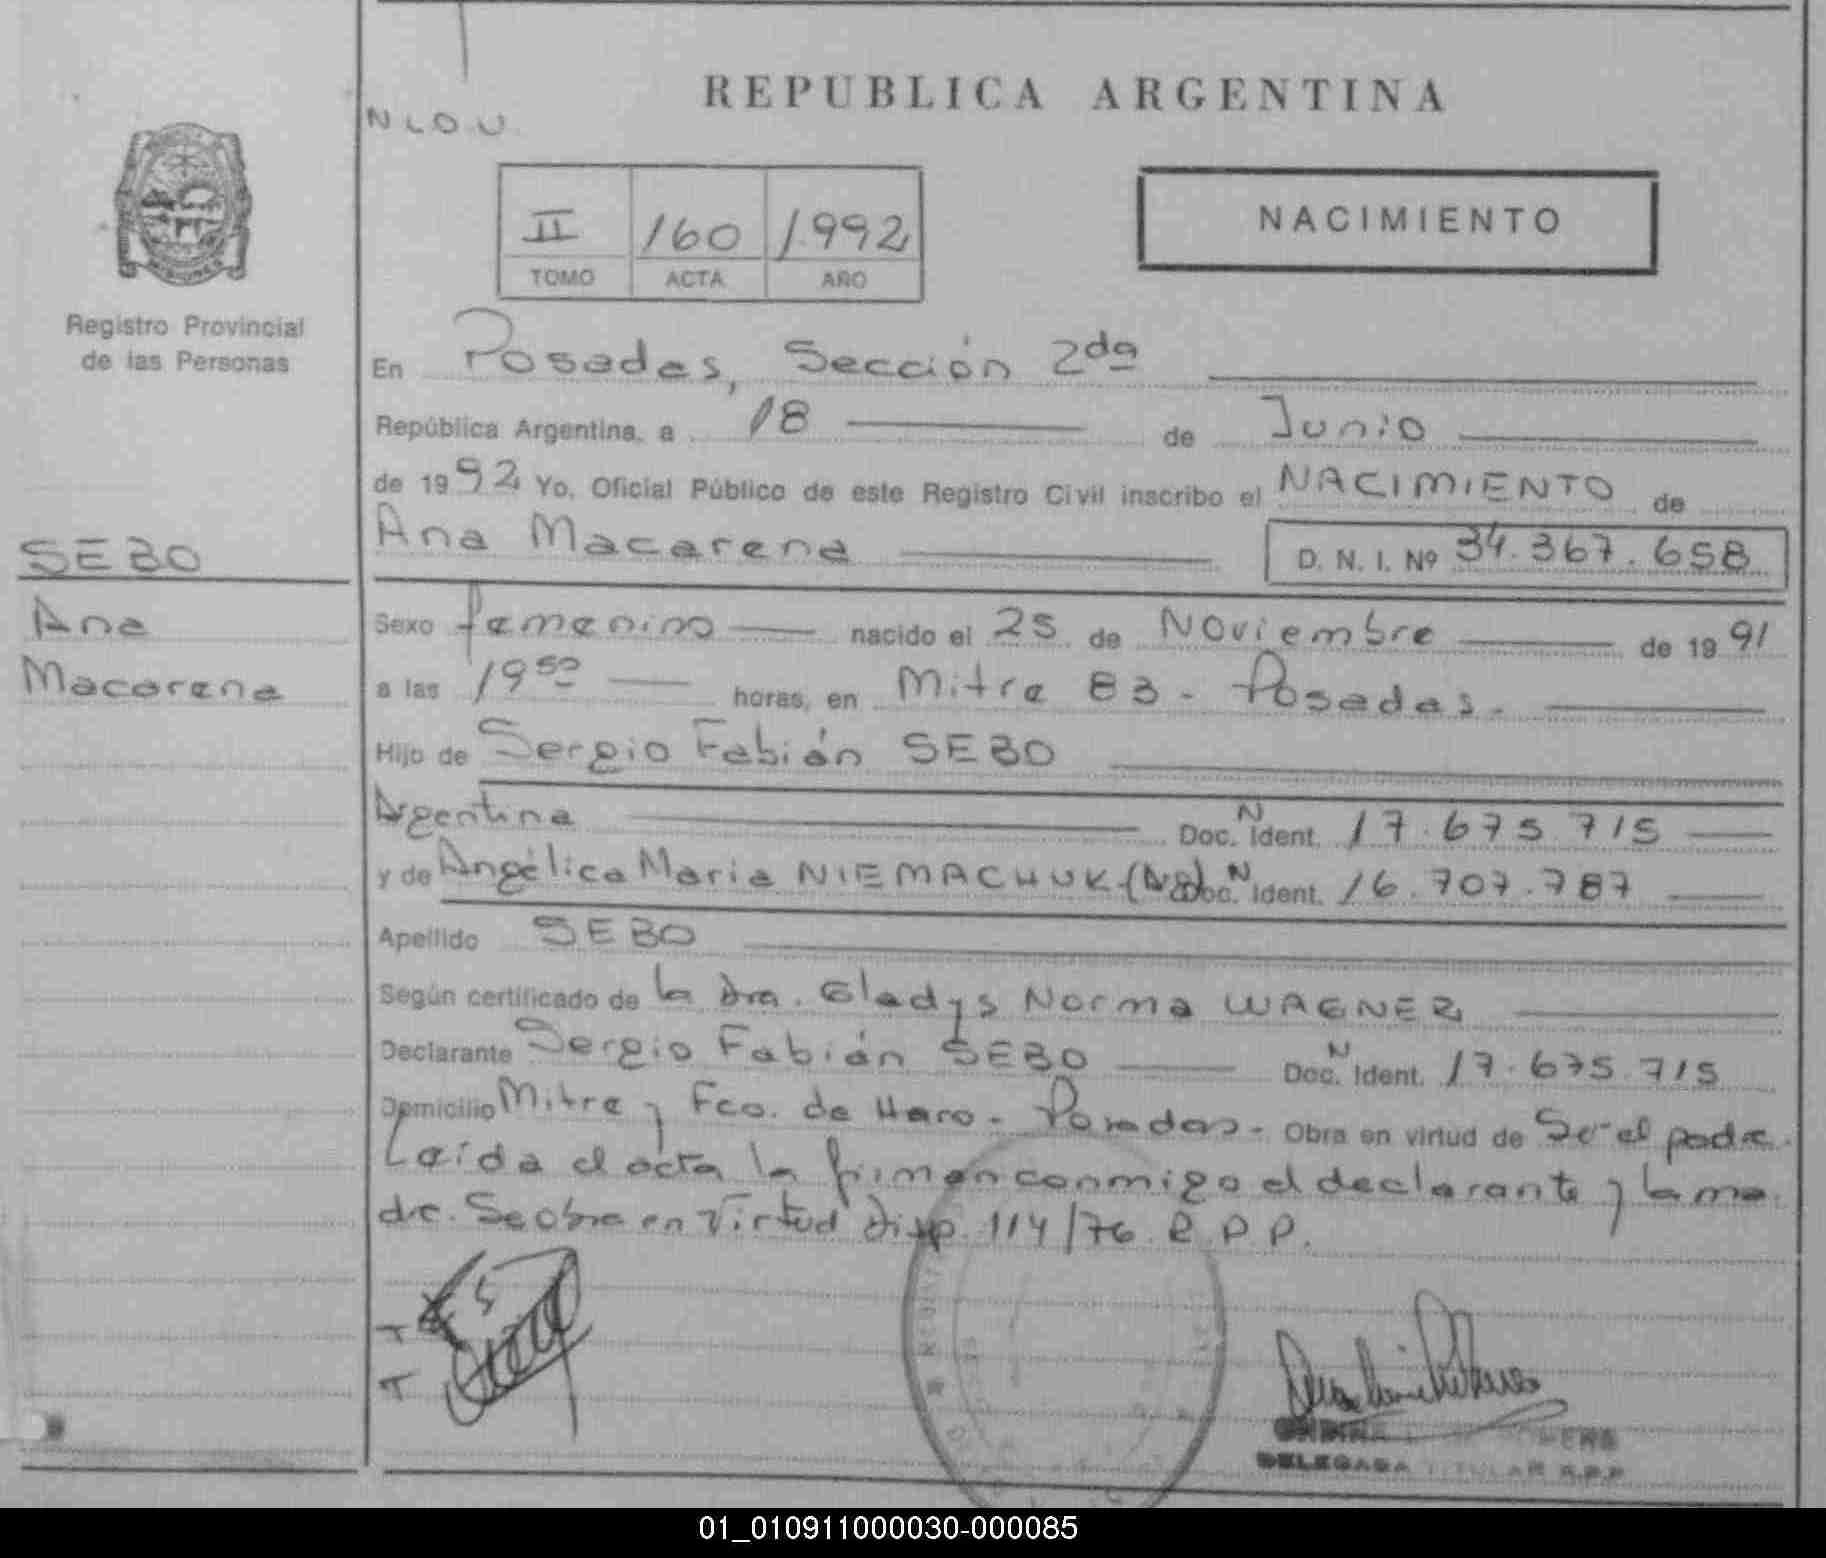 REPUBLICA ARGENTINA
NLOU
II 160 1992
TOMO ACTA AÑO
NACIMIENTO
MISIONES
Registro Provincial
de las Personas
En Posadas, Sección 2da
República Argentina, a 18 de Junio
de 1992 Yo, Oficial Público de este Registro Civil inscribo el NACIMIENTO de
Ana Macarena D. N. I. Nº 34.367.658
SEBO
Ana
Macarena
Sexo femenino nacido el 25 de Noviembre de 1991
a las 19 50 horas, en Mitre 83 - Posadas.
Hijo de Sergio Fabián SEBO
Argentina Doc. N Ident. 17.675.715
y de Angélica María NIEMACHUK (Ag) Doc. N Ident. 16.707.787
Apellido SEBO
Según certificado de la Dra. Gladys Norma WAGNER
Declarante Sergio Fabián SEBO Doc. N Ident. 17.675.715
Domicilio Mitre y Fco. de Haro - Posadas - Obra en virtud de Ser el padre.
Leída el acta la firman conmigo el declarante y la ma
dre. Se obra en Virtud Disp. 114/76 R.P.P.
DELEGADA TITULAR R.P.P
01_010911000030-000085